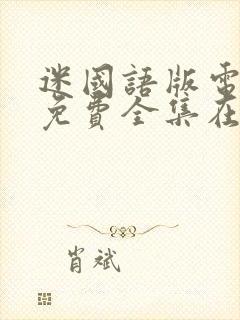 迷國語版電
免費全集在
肖斌